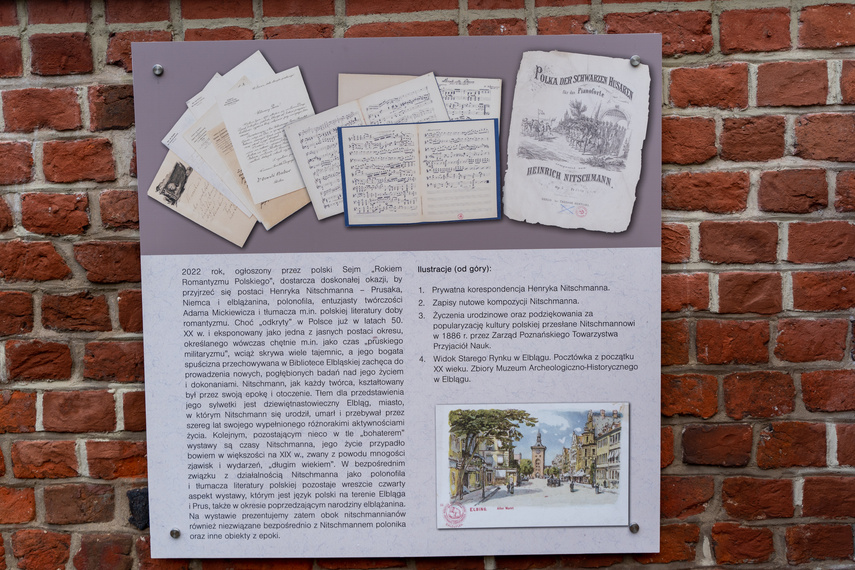 POLKA DER SCHWARZEN HUSAREN
für das Pianoforte
HEINRICH NITSCHMANN.
2022 rok, ogłoszony przez polski Sejm „Rokiem
Romantyzmu Polskiego”, dostarcza doskonałej okazji, by
przyjrzeć się postaci Henryka Nitschmanna – Prusaka,
Niemca i elblążanina, polonofila, entuzjasty twórczości
Adama Mickiewicza i tłumacza m.in. polskiej literatury doby
romantyzmu. Choć „odkryty” w Polsce już w latach 50.
XX w. i eksponowany jako jedna z jasnych postaci okresu,
określanego wówczas chętnie m.in. jako czas „pruskiego
militaryzmu”, wciąż skrywa wiele tajemnic, a jego bogata
spuścizna przechowywana w Bibliotece Elbląskiej zachęca do
prowadzenia nowych, pogłębionych badań nad jego życiem
i dokonaniami. Nitschmann, jak każdy twórca, kształtowany
był przez swoją epokę i otoczenie. Tłem dla przedstawienia
jego sylwetki jest dziewiętnastowieczny Elbląg, miasto,
w którym Nitschmann się urodził, umarł i przebywał przez
szereg lat swojego wypełnionego różnorakimi aktywnościami
życia. Kolejnym, pozostającym nieco w tle „bohaterem”
wystawy są czasy Nitschmanna, jego życie przypadło
bowiem w większości na XIX w., zwany z powodu mnogości
zjawisk i wydarzeń, „długim wiekiem”. W bezpośrednim
związku z działalnością Nitschmanna jako polonofila
i tłumacza literatury polskiej pozostaje wreszcie czwarty
aspekt wystawy, którym jest język polski na terenie Elbląga
i Prus, także w okresie poprzedzającym narodziny elblążanina.
Na wystawie prezentujemy zatem obok nitschmannianów
również niezwiązane bezpośrednio z Nitschmannem polonika
oraz inne obiekty z epoki.
Ilustracje (od góry):
1. Prywatna korespondencja Henryka Nitschmanna.
2. Zapisy nutowe kompozycji Nitschmanna.
3. Życzenia urodzinowe oraz podziękowania za
popularyzację kultury polskiej przesłane Nitschmannowi
w 1886 r. przez Zarząd Poznańskiego Towarzystwa
Przyjaciół Nauk.
4. Widok Starego Rynku w Elblągu. Pocztówka z początku
XX wieku. Zbiory Muzeum Archeologiczno-Historycznego
w Elblągu.
ELBING Alter Markt